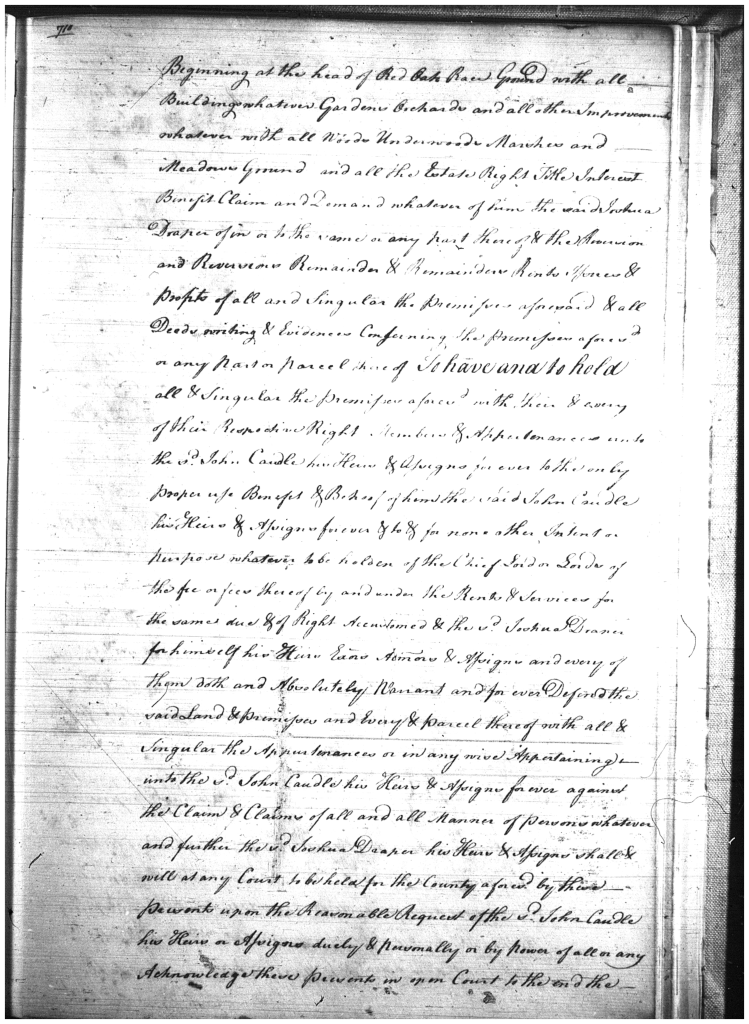 710
Beginning at the head of Red Oak Race Ground with all
Buildings whatever Gardens Orchards and all other Improvements
whatever with all Woods Underwoods Marshes and
Meadows Ground and all the Estate Right Title Interest
Benefit Claim and Demand whatever of him the said Joshua
Draper of in or to the same or any part there of & the Reversion
and Reversions Remainder & Remainders Rents Issues &
profits of all and Singular the premisses aforesaid & all
Deeds writing & Evidences Conserning the premisses aforesd
or any Part or parcel there of To have and to hold
all & Singular the premisses aforesd with their & every
of their Respective Right Members & Appertenances unto
the sd. John Caudle his Heirs & Assigns for ever to the only
proper use Benefit & Behoof of him the said John Caudle
his Heirs & Assigns forever & to & for none other Intent or
purpose whatever to be holden of the Chief Lord or Lords of
the fee or fees thereof by and under the Rents & Services for
the same due & of Right Accustomed & the sd Joshua Draper
for himself his Heirs Exors Admors & Assigns and every of
them doth and Absolutely Warrant and for ever Defend the
said Land & premisses and Every & parcel there of with all &
Singular the Appurtenances or in any wise Appertaining
unto the sd John Caudle his Heirs & Assigns forever against
the Claim & Claims of all and all Manner of persons whatever
and further the sd Joshua Draper his Heirs & Assigns shall &
will at any Court to be held for the County aforesd by these
presents upon the Reasonable Request of the sd. John Caudle
his Heirs or Assigns duely & personally or by power of all or any
Acknowledge these presents in open Court to the end the